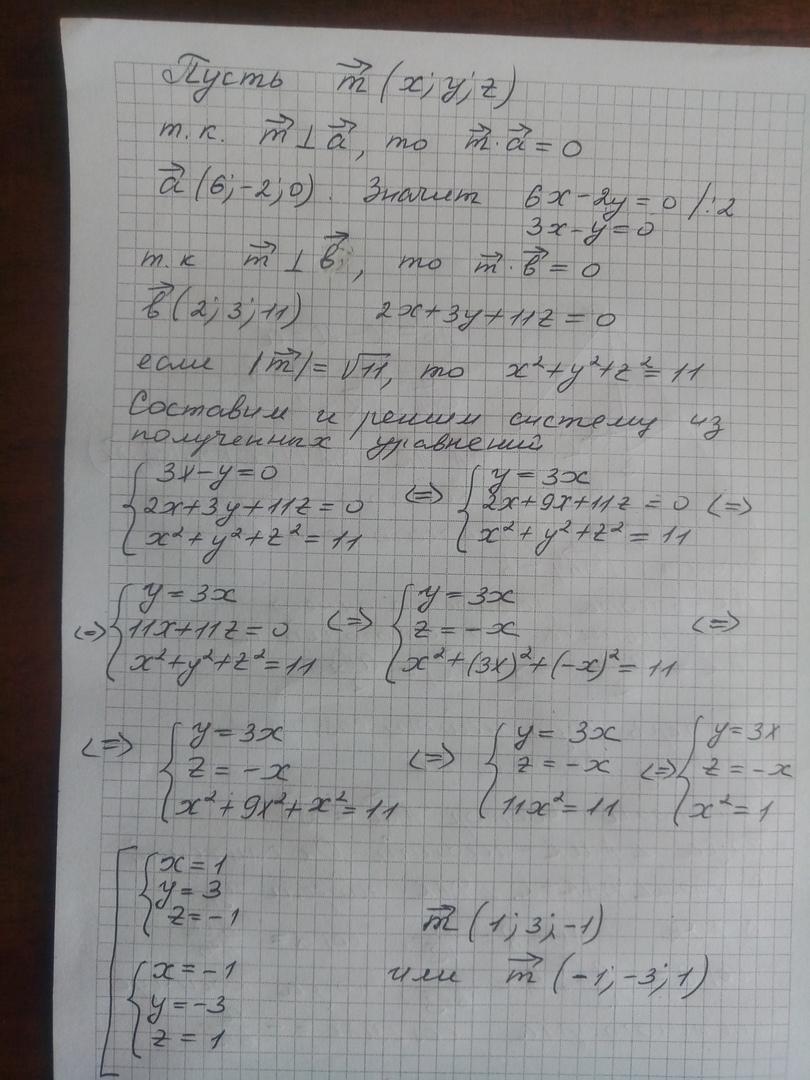 Пусть m⃗ (x; y; z)
т.к. m⃗ ⊥ a⃗, то m⃗ · a⃗ = 0
a⃗ (6; -2; 0). Значит 6x - 2y = 0 /:2
3x - y = 0
т.к m⃗ ⊥ в⃗, то m⃗ · в⃗ = 0
в⃗ (2; 3; 11) 2x + 3y + 11z = 0
если |m⃗| = √11, то x² + y² + z² = 11
Составим и решим систему из
полученных уравнений
{ 3x - y = 0
2x + 3y + 11z = 0
x² + y² + z² = 11
<=> { y = 3x
2x + 9x + 11z = 0 <=>
x² + y² + z² = 11
<=> { y = 3x
11x + 11z = 0
x² + y² + z² = 11
<=> { y = 3x
z = -x <=>
x² + (3x)² + (-x)² = 11
<=> { y = 3x
z = -x
x² + 9x² + x² = 11
<=> { y = 3x
z = -x
11x² = 11
<=> { y = 3x
z = -x
x² = 1
[ { x = 1
y = 3
z = -1
{ x = -1
y = -3
z = 1
m⃗ (1; 3; -1)
или m⃗ (-1; -3; 1)